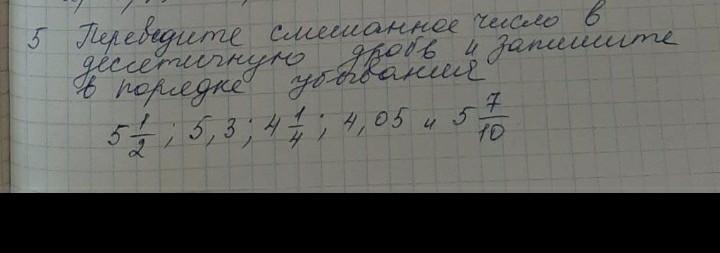 5 Переведите смешанное число в
десятичную дробь и запишите
в порядке убывания
5 1/2 ; 5,3 ; 4 1/4 ; 4,05 и 5 7/10